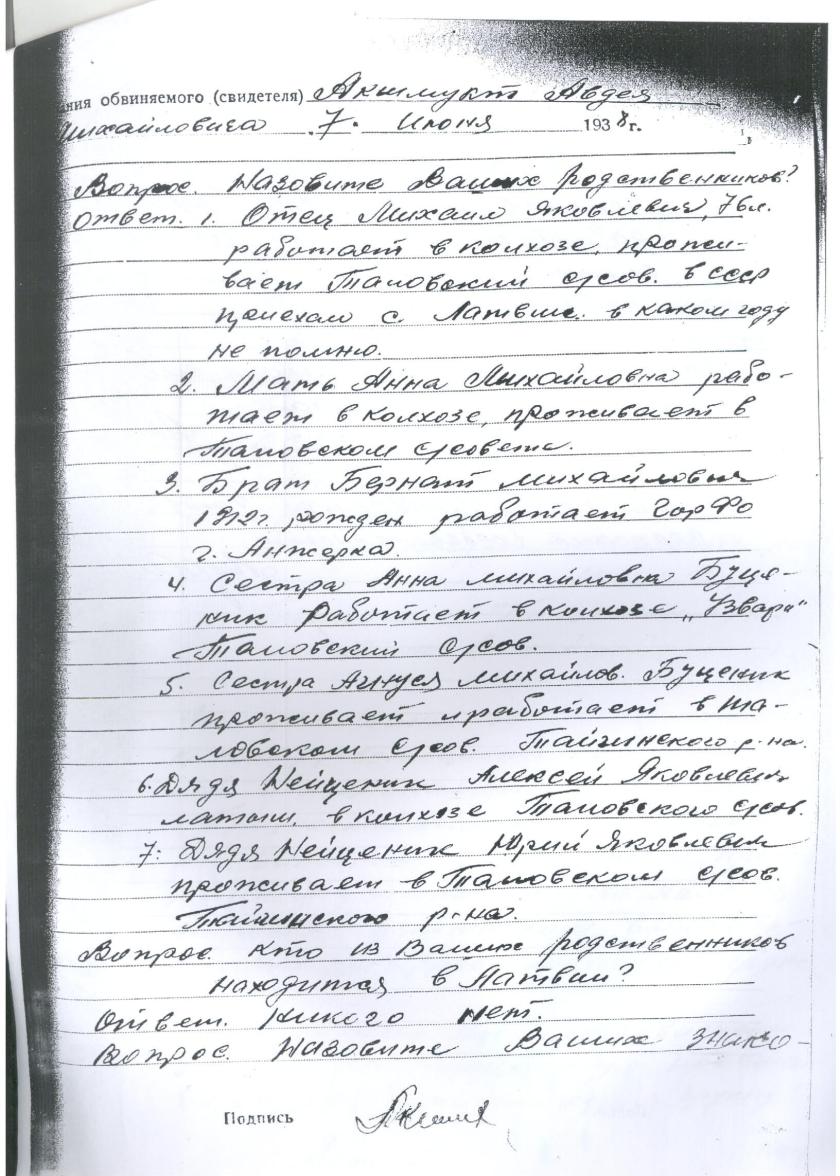 ния обвиняемого (свидетеля) Акимукт Авдея
Михайловича 7. Июня 1938 г.
Вопрос. Назовите Ваших родственников?
Ответ. 1. Отец Михаил Яковлевич, 76 л.
работает в колхозе, прожи-
вает Таловский с/сов. в СССР
приехал с Латвии. в каком году
не помню.
2. Мать Анна Михайловна рабо-
тает в колхозе, проживает в
Таловском с/совете.
3. Брат Бернат Михайлович
1912г рожден работает ГорФо
г. Анжерка.
4. Сестра Анна Михайловна Буце-
ник работает в колхозе „Узвара"
Таловский с/сов.
5. Сестра Агнуся Михайлов. Буценик
проживает и работает в Та-
ловском с/сов. Тайгинского р-на.
6. Дядя Нейценик Алексей Яковлевич
латыш, в колхозе Таловского с/сов.
7: Дядя Нейценик Юрий Яковлевич
проживает в Таловском с/сов.
Тайгинского р-на.
Вопрос. Кто из Ваших родственников
находится в Латвии?
Ответ. Никого нет.
Вопрос. Назовите Ваших знако-
Подпись